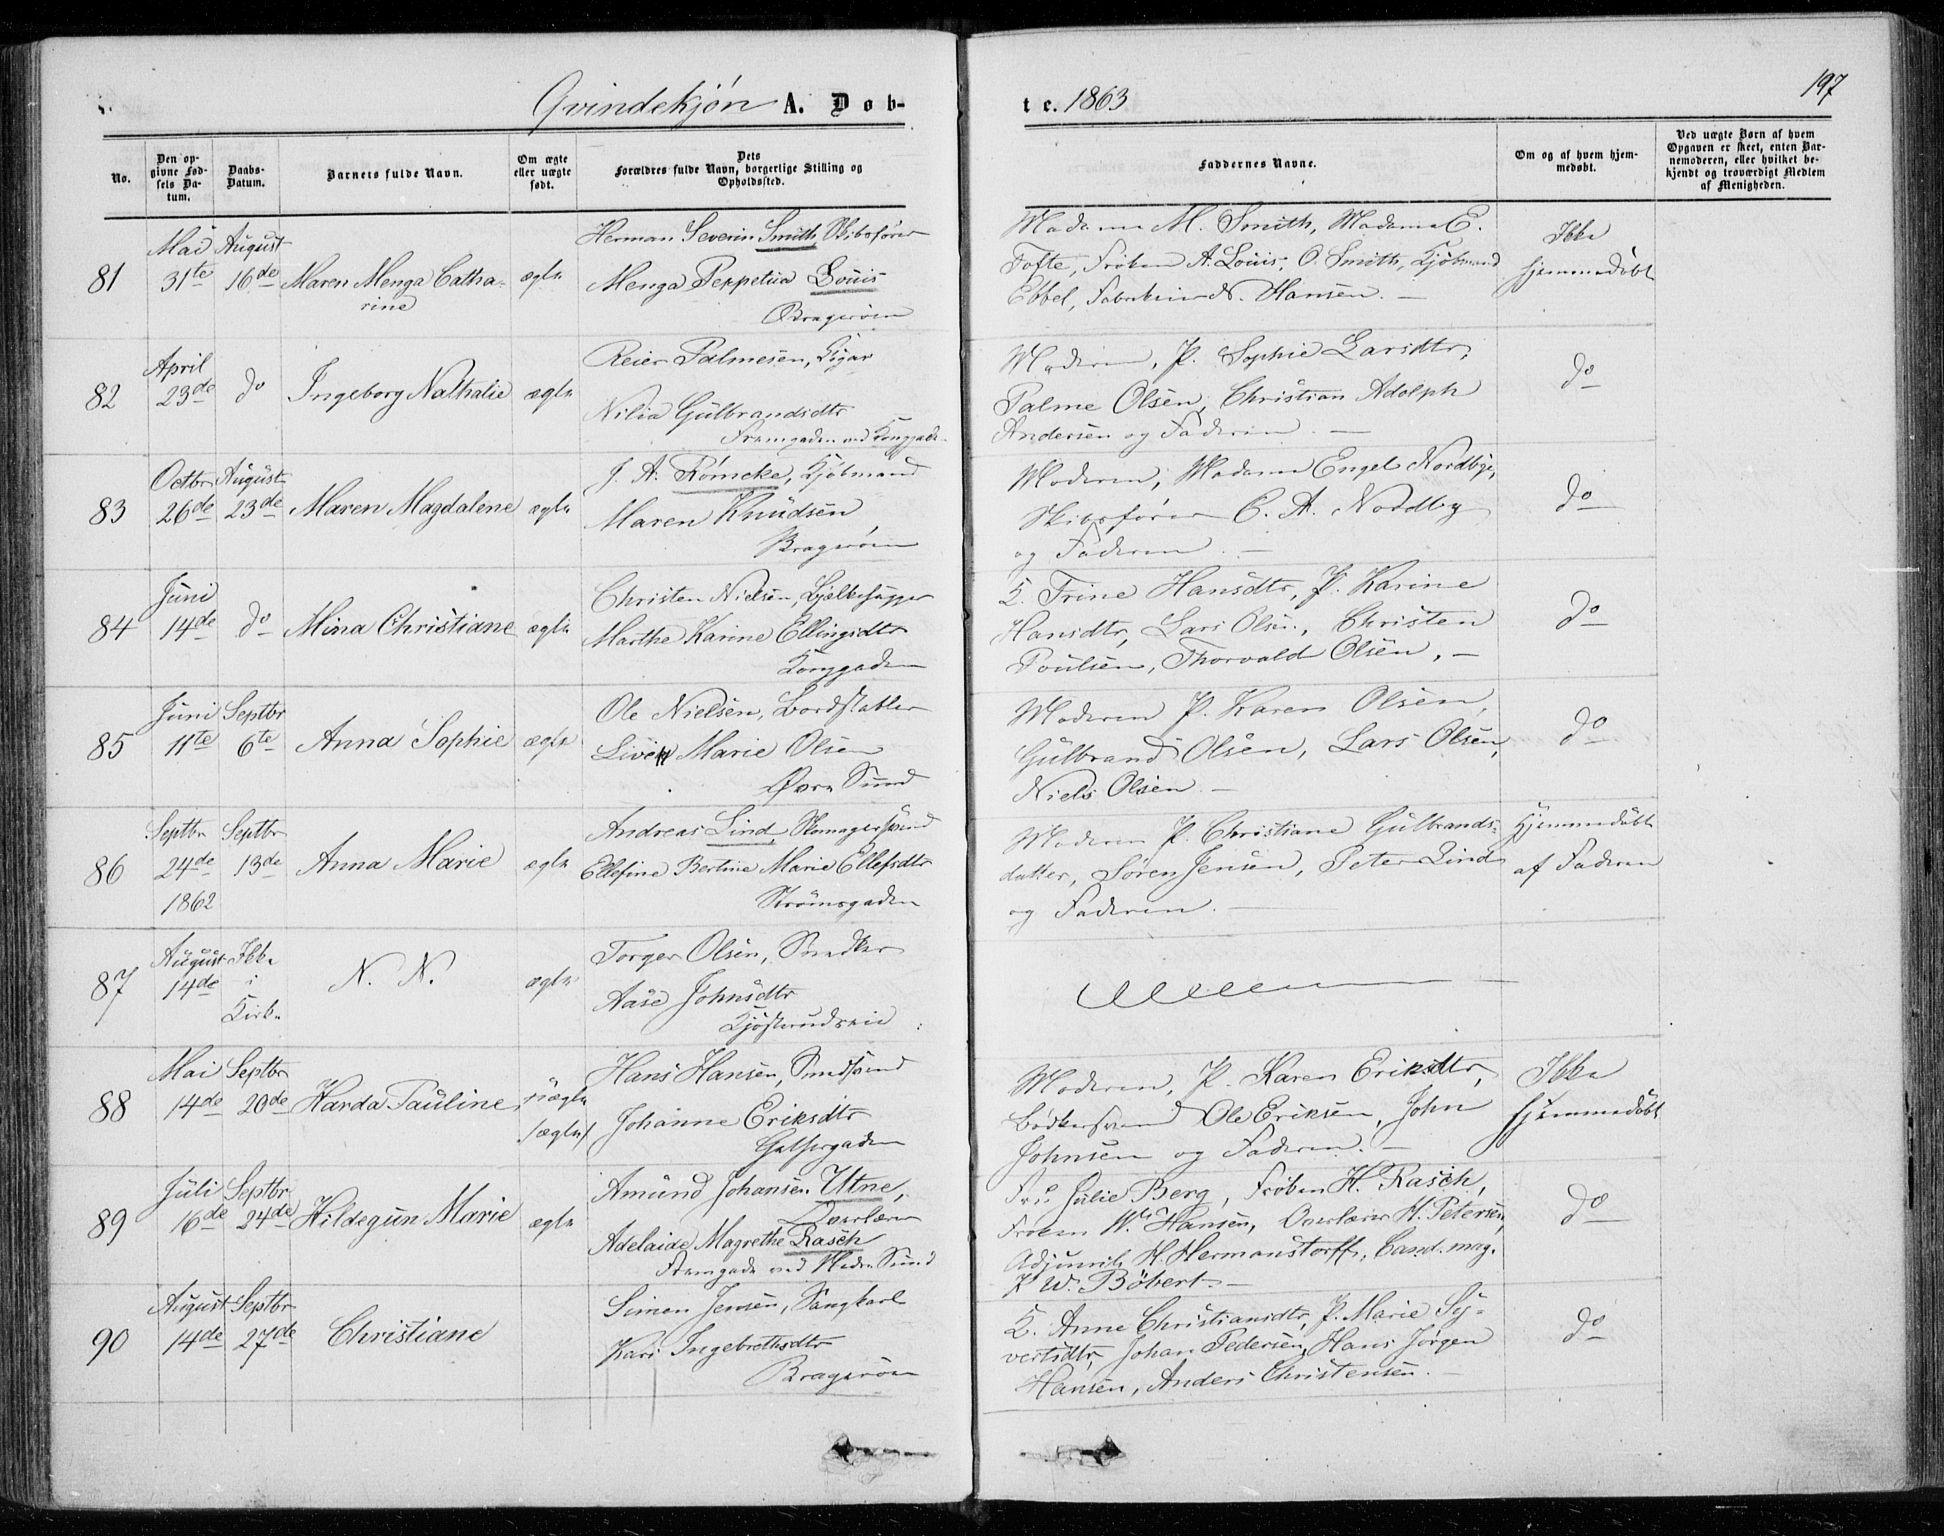 Qvindekjøn A. Døb-
te. 1863
197
No.
Den op-
givne Fød-
sels Da-
tum.
Daabs-
Datum.
Barnets fulde Navn.
Om ægte
eller uægte
født.
Dets
Forældres fulde Navn, borgerlige Stilling og
Opholdssted.
Faddernes Navne.
Om og af hvem hjem-
medøbt.
Ved uægte Børn af hvem
Opgaven er skeet, enten Bar-
nemoderen, eller hvilket be-
kjendt og troværdigt Medlem
af Menigheden.
81
Mai
31te
August
16de
Maren Menga Catha-
rine
ægte
Herman Severin Smith, Skibsfører
Menga Peppetua Louis
Bragerøen
Madame M. Smith, Madame E.
Tofte, Frøken A. Louis, O. Smith, Kjøbmand
Ebbel, Fabrikeier N. Hansen. —
Ikke
hjemmedøbt
82
April
23de
do
Ingeborg Nathalie
ægte
Reier Palmesen,
Nilia Gulbrandsdtr
Tramgaden ved Konggade
Moderen, P. Sophie Larsdtr,
Palme Olsen, Christian Adolph
Andersen og Faderen. —
do
83
Octbr
26de
August
23de
Maren Magdalene
ægte
J. A. Rømcke, Kjøbmand
Maren Knudsen
Bragerøen
Moderen, Madame Engel Nordbye,
Skibsfører C. A. Noddby
og Faderen. —
do
84
Juni
14de
do
Mina Christiane
ægte
Christen Nielsen, Bjelkehugger
Marthe Karine Ellingsdtr
Konggaden
K. Trine Hansdtr, P. Karine
Hansdtr, Lars Olsen, Christen
Poulsen, Thorvald Olsen, —
do
85
Juni
11te
Septbr
6te
Anna Sophie
ægte
Ole Nielsen, Bordstabler
Live Marie Olsen
Øvre Sund
Moderen P. Karen Olsen,
Gulbrand Olsen, Lars Olsen,
Niels Olsen —
do
86
Septbr
24de
1862
Septbr
13de
Anna Marie
ægte
Andreas Lind, Skomagersvend
Ellefine Bertine Marie Ellefsdtr
Strømsgaden
Moderen P. Christiane Gulbrands-
datter, Søren Jensen, Peter Lind
og Faderen. —
Hjemmedøbt
af Faderen
87
August
14de
Ikke
i
Kirke
N. N.
ægte
Torger Olsen, Snedker
Aase Johnsdtr
Kjøsterudveie
88
Mai
14de
Septbr
20de
Harda Pauline
uægte
/ægte/
Hans Hansen, Smedsvend
Johanne Eriksdtr
Gjetergaden
Moderen, P. Karen Eriksdtr,
Bødkersvend Ole Eriksen, John
Johnsen og Faderen. —
Ikke
hjemmedøbt
89
Juli
16de
Septbr
24de
Hildegun Marie
ægte
Amund Johansen Utne,
Overlærer
Adelaide Magrethe Rasch
Tramgade ved Nedre Sund
Fru Julie Berg, Frøken H. Rasch,
Frøken W. Hansen, Overlærer H. Petersen,
Adjunct H. Hermanstorff, Cand. mag.
K W. Bøbert. —
do
90
August
14de
Septbr
27de
Christiane
Simen Jensen, Sangkarl
Kari Ingebrethsdtr
Bragerøen
K. Anne Christiansdtr, P. Marie Sy-
vertsdtr, Johan Pedersen, Hans Jørgen
Hansen, Anders Christensen. —
do